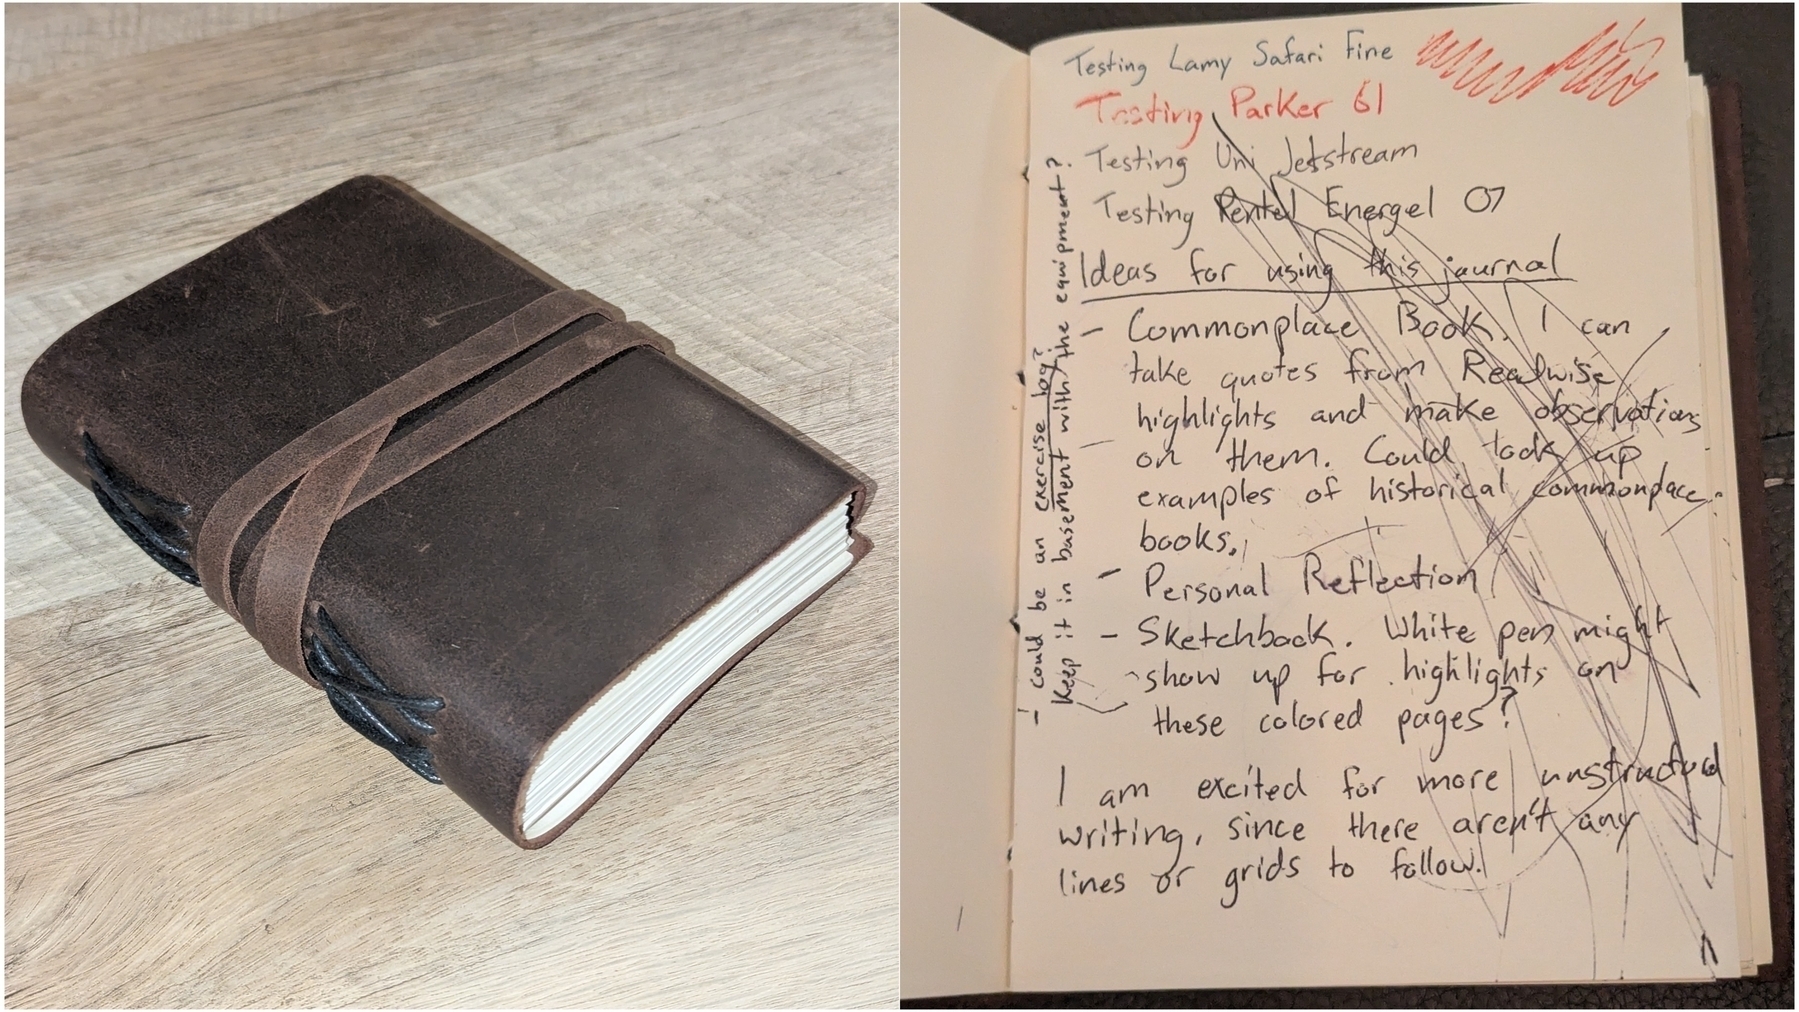 Testing Lamy Safari Fine
Testing Parker 61
Testing Uni Jetstream
Testing Pentel Energel 07
Ideas for using this journal
- Commonplace Book. I can
take quotes from Readwise
highlights and make observations
on them. Could look up
examples of historical commonplace
books.
- Personal Reflection
- Sketchbook. White pen might
show up for highlights on
these colored pages?
I am excited for more unstructured
writing, since there aren't any
lines or grids to follow.
- Could be an exercise log?
Keep it in basement with the equipment?